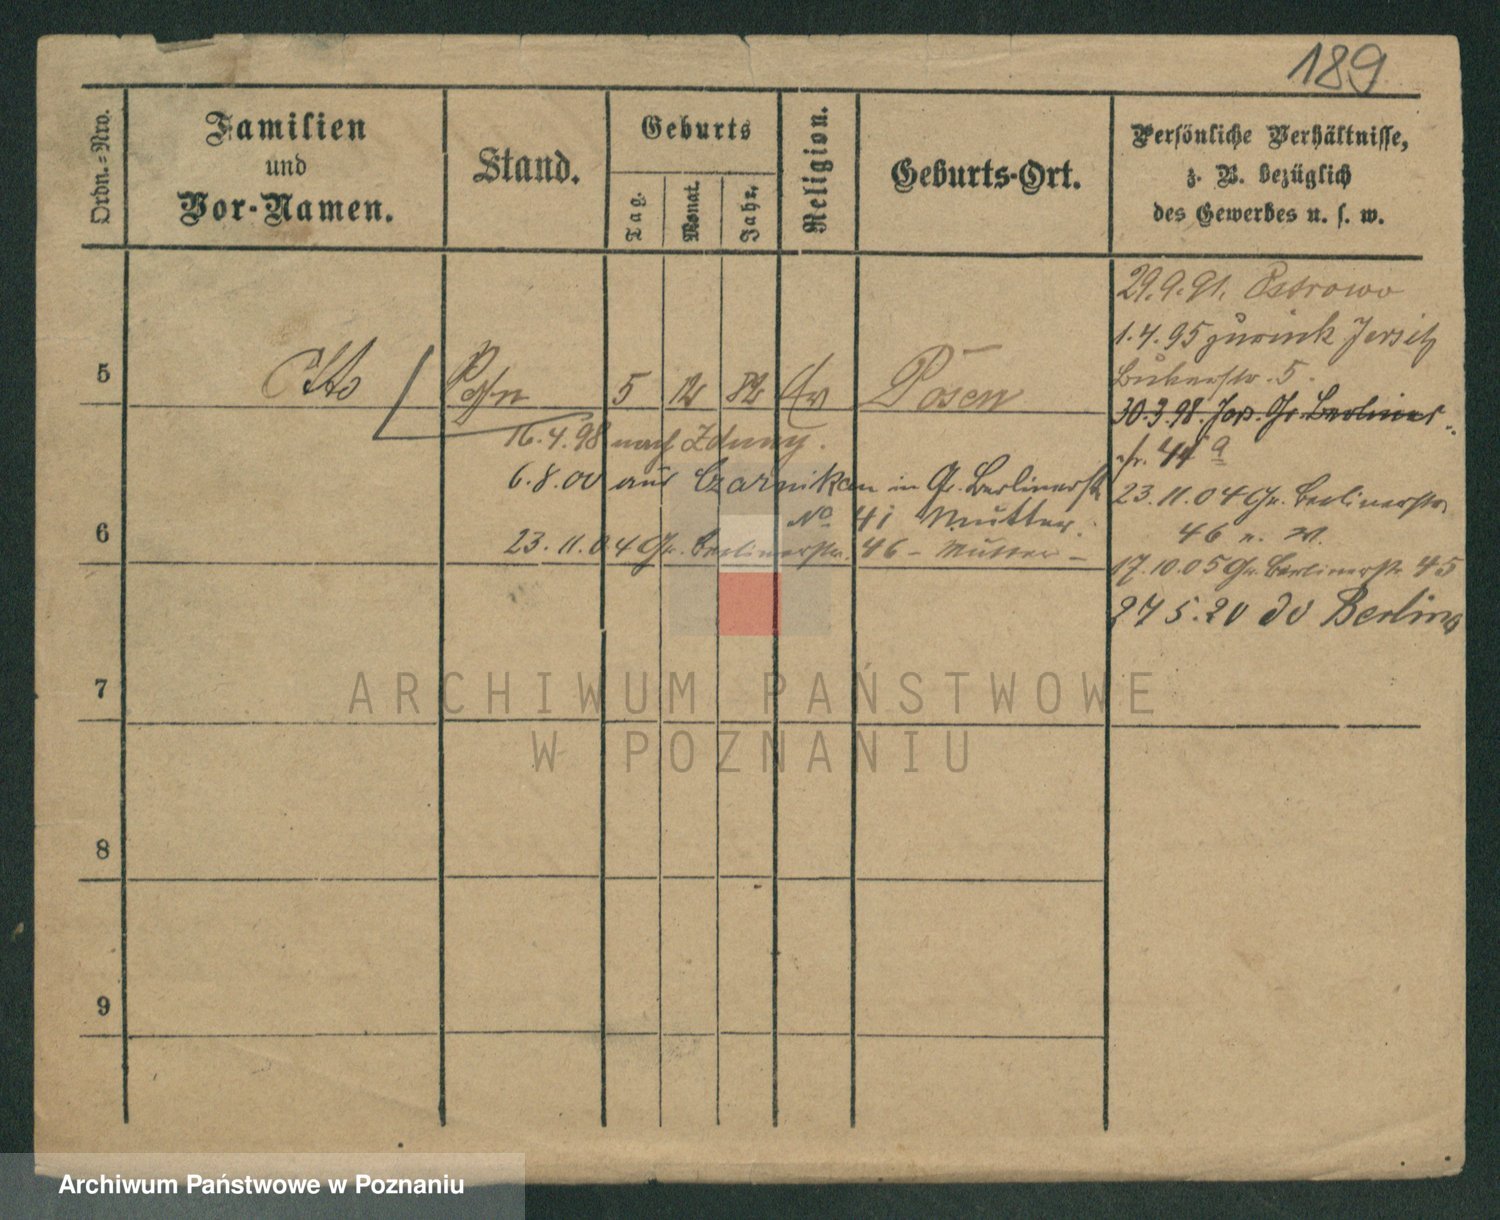 189
Ordn.-Nro.
Familien
und
Vor-Namen.
Stand.
Geburts
Tag.
Monat.
Jahr.
Religion.
Geburts-Ort.
Persönliche Verhältnisse,
z. B. bezüglich
des Gewerbes u. s. w.
5
Otto
5 12 82 Ev Posen
16.4.98 nach Zduny.
6.8.00 aus Czarnikau in Gr. Berlinerstr
No 41 Mutter.
23.11.04 Gr. Berlinerstr. 46 - Mutter -
29.9.91. Ostrowo
1.4.95 zurück Jersitz
Bukerstr. 5.
30.3.98. Jers. Gr. Berliner
str. 41 a
23.11.04 Gr. Berlinerstr
46 n. W.
17.10.05 Gr. Berlinerstr 45
27 5.20 Berlin
6
7
8
9
ARCHIWUM PAŃSTWOWE
W POZNANIU
Archiwum Państwowe w Poznaniu